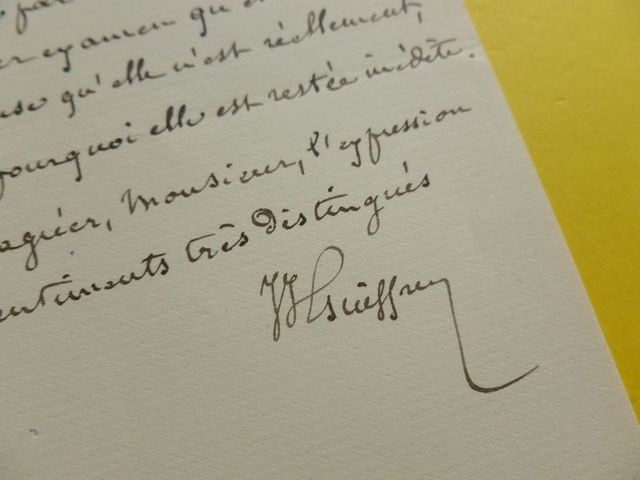 par
examen qu'
qu'elle n'est réellement,
pourquoi elle est restée inédite.
agréer, Monsieur, l'expression
sentiments très distingués
JJ Guiffrey